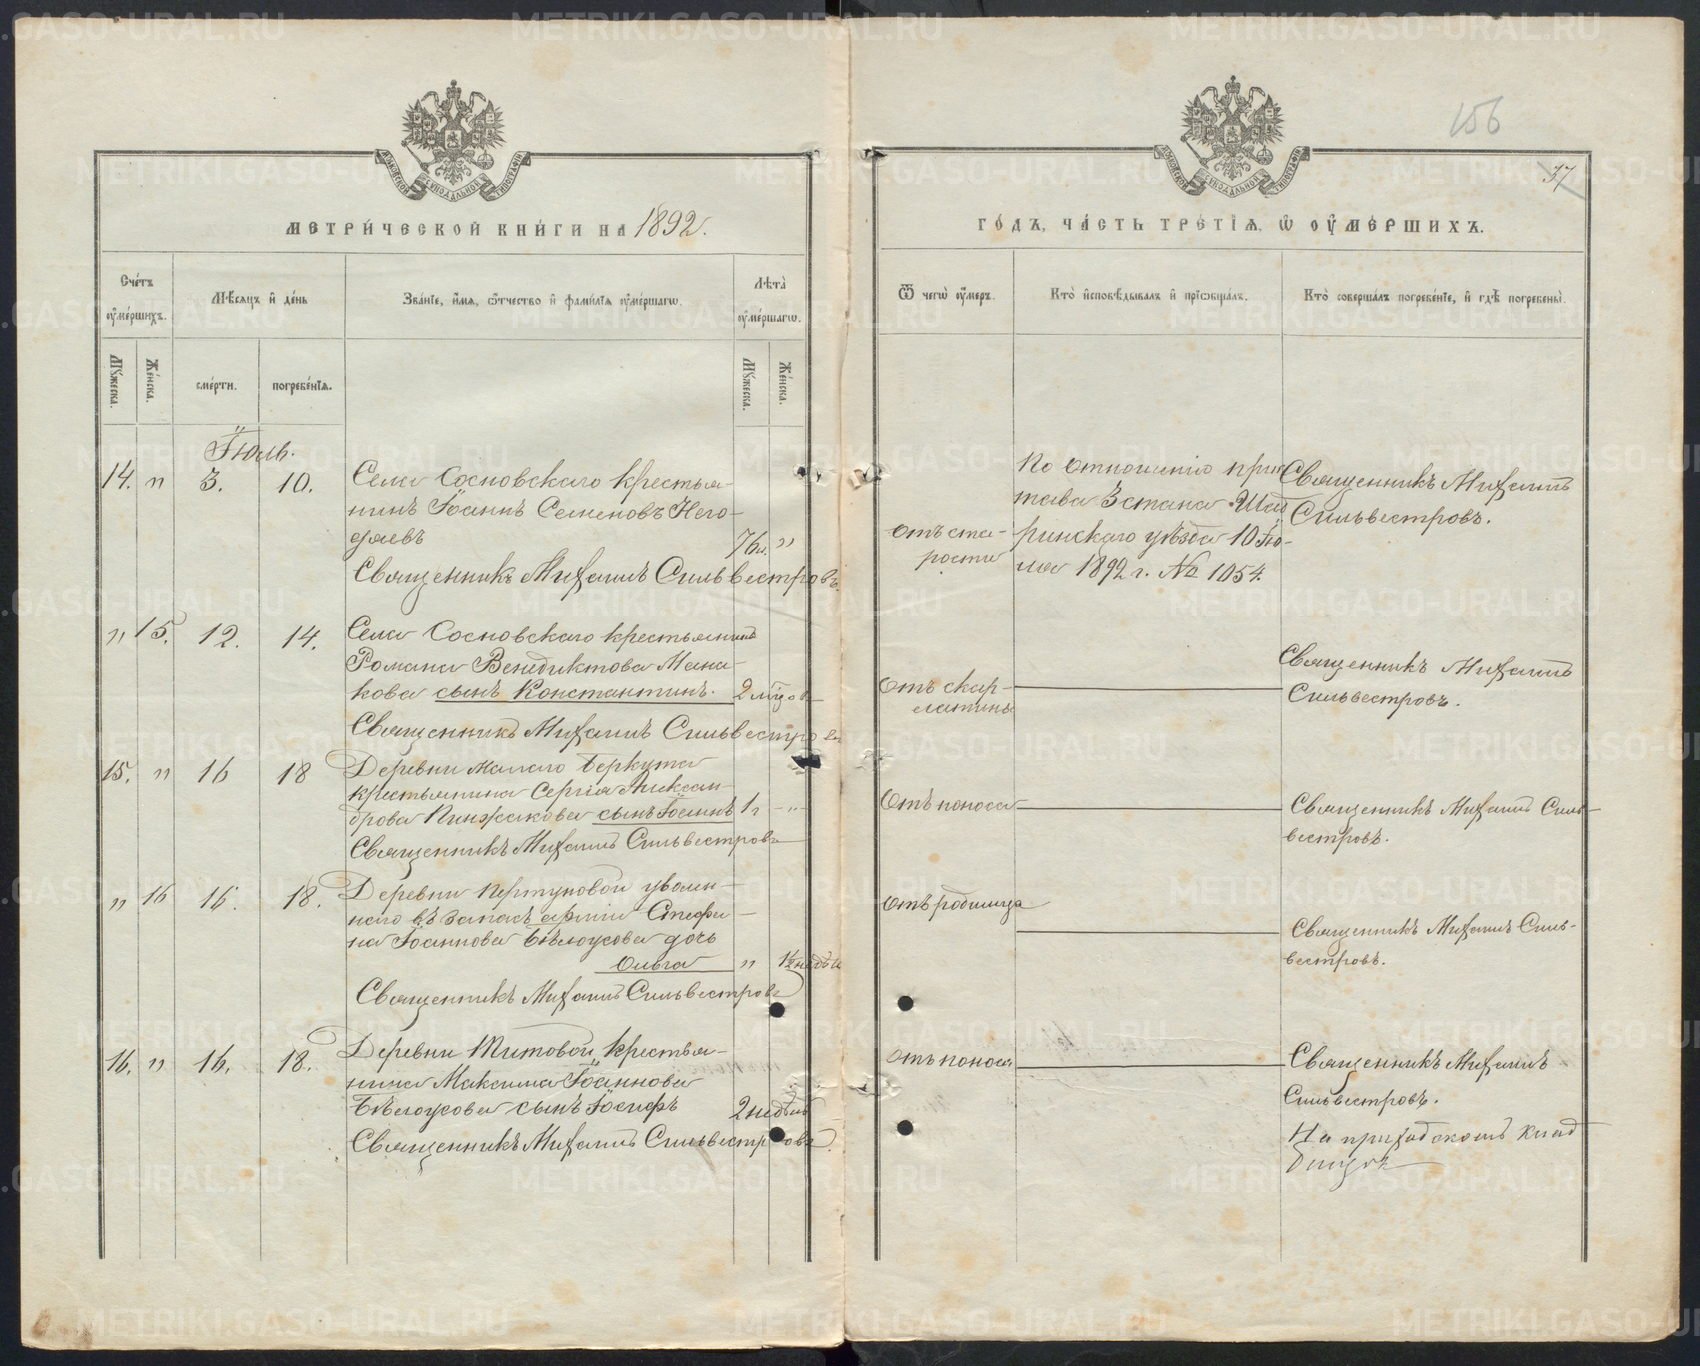 156
37
МЕТРИ́ЧЕСКОЙ КНИ́ГИ НА 1892.
ГО́ДЪ, ЧА́СТЬ ТРЕ́ТІѦ, Ѡ҆ ОУ҆МЕ́РШИХЪ.
Сче́тъ оу҆ме́ршихъ.
Мѣ́сяцъ и҆ де́нь
Зва́ніе, и҆́мѧ, ѻ҆́тчество и҆ фами́ліѧ оу҆ме́ршагѡ.
Лѣ́та оу҆ме́ршагѡ.
Ѿ чегѡ̀ оу҆́меръ.
Кто̀ и҆сповѣ́дывалъ и҆ прїѡбща́лъ.
Кто̀ соверша́лъ погребе́ніе, и҆ гдѣ̀ погребены̀.
Мꙋ́жеска.
Же́нска.
сме́рти.
погребе́нїѧ.
Мꙋ́жеска.
Же́нска.
Іюль.
14. " 3. 10.
Села Сосновскаго крестья-
нинъ Іоаннъ Семеновъ Него-
дяевъ 76л. "
Священникъ Михаилъ Сильвестровъ
отъ ста-
рости
По отношенію прис
тава 3 стана Шад
ринскаго уѣзда 10 Ію-
ля 1892 г. № 1054.
Священникъ Михаилъ
Сильвестровъ.
" 15. 12. 14.
Села Сосновскаго крестьянина
Романа Венедиктова Мана-
кова сынъ Константинъ. 2 мѣсцов
Священникъ Михаилъ Сильвестровъ
Отъ скар-
латины
Священникъ Михаилъ
Сильвестровъ.
15. " 16 18
Деревни Малаго Беркута
крестьянина Сергія Алексан
дрова Пинжакова сынъ Іоаннъ 1 г - " -
Священникъ Михаилъ Сильвестровъ
Отъ поноса
Священникъ Михаилъ Силь-
вестровъ.
" 16 16. 18.
Деревни Пертуновой уволен-
наго въ запасъ арміи Стефа-
на Іоаннова Бѣлоусова дочь
Ольга " 1½ недѣли
Священникъ Михаилъ Сильвестровъ
Отъ родимца
Священникъ Михаилъ Силь-
вестровъ.
16. " 16. 18.
Деревни Титовой крестья-
нина Максима Іоаннова
Бѣлоусова сынъ Іосифъ 2 недѣль
Священникъ Михаилъ Сильвестровъ.
Отъ поноса
Священникъ Михаилъ
Сильвестровъ.
На приходскомъ клад
бищѣ